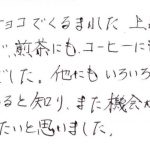 ョコでくるまれした 上
、煎茶にも、コーヒーに
でした。他にもいろいろ
ると知り、また機会
たいと思いました。